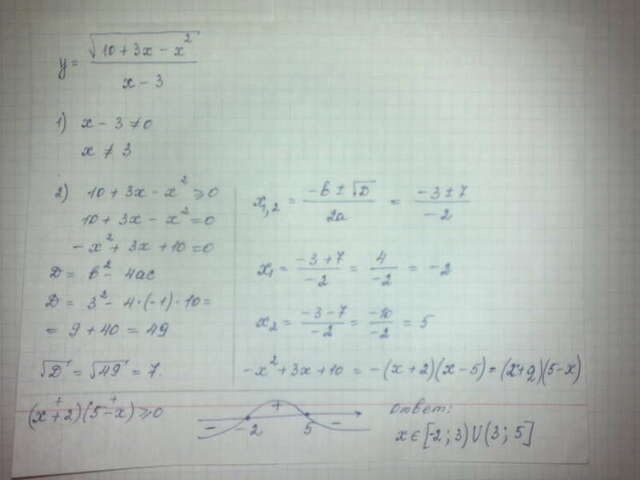 y = √(10 + 3x − x²) / (x − 3)
1) x − 3 ≠ 0
x ≠ 3
2) 10 + 3x − x² ⩾ 0
10 + 3x − x² = 0
−x² + 3x + 10 = 0
D = b² − 4ac
D = 3² − 4·(−1)·10 =
= 9 + 40 = 49
√D = √49 = 7.
x₁,₂ = (−b ± √D) / 2a = (−3 ± 7) / −2
x₁ = (−3 + 7) / −2 = 4 / −2 = −2
x₂ = (−3 − 7) / −2 = −10 / −2 = 5
−x² + 3x + 10 = −(x + 2)(x − 5) = (x + 2)(5 − x)
(x + 2)(5 − x) ⩾ 0
− −2 + 5 −
Ответ:
x ∈ [−2; 3) ∪ (3; 5]